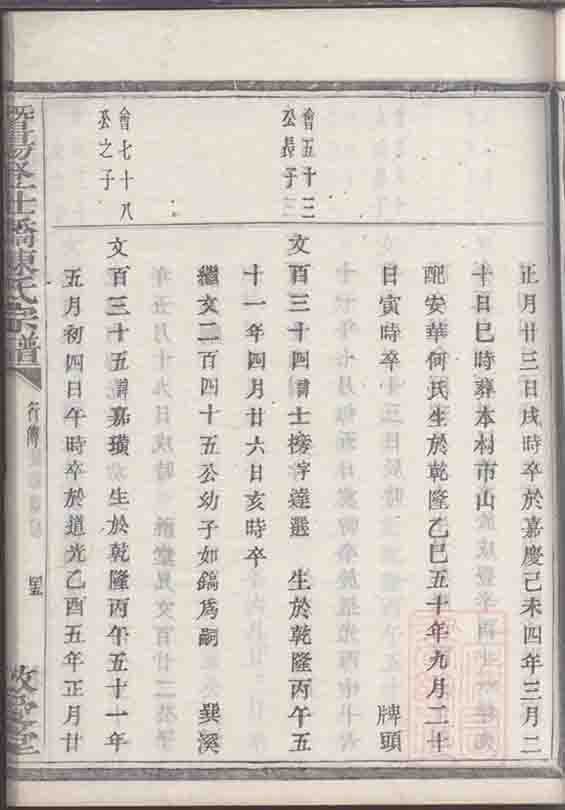 正月廿三日戌時卒於嘉慶己未四年三月二
十日巳時葬本村市山
配安華何氏生於乾隆乙巳五十年九月二十
日寅時卒 牌頭
會五十三
公長子
文百三十四諱士棱字達選 生於乾隆丙午五
十一年四月廿六日亥時卒
繼文二百四十五公幼子如鎬為嗣 巽溪
會七十八
公之子
文百三十五諱嘉璜 生於乾隆丙午五十一年
五月初四日午時卒於道光乙酉五年正月廿
暨陽 橋陳氏宗譜 行傳